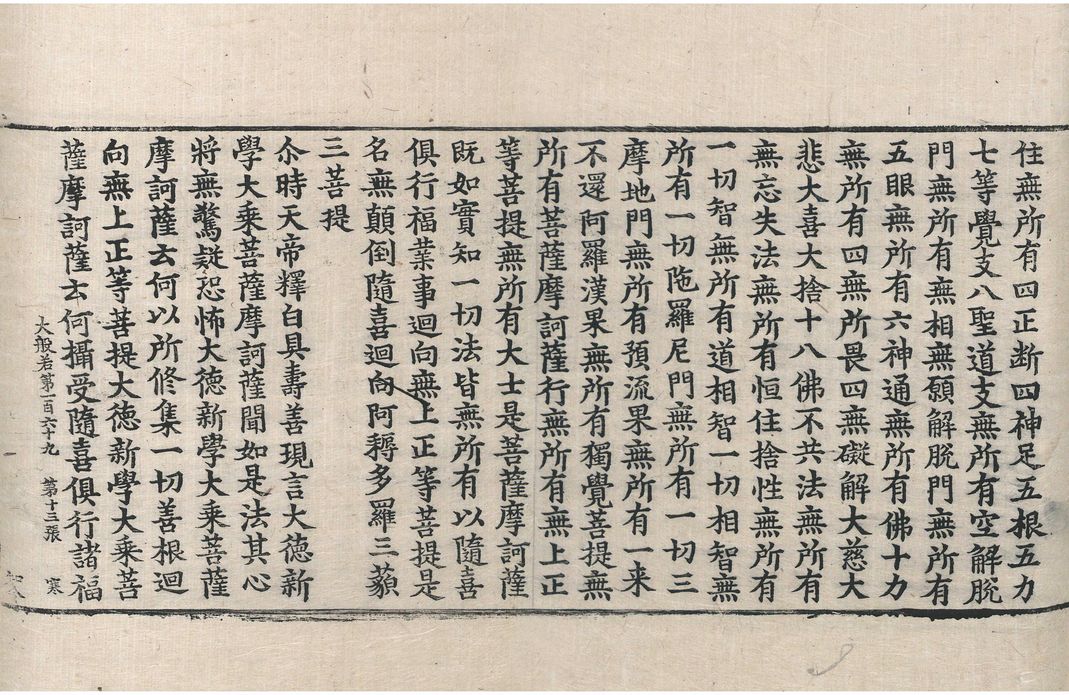 住無所有四正断四神足五根五力
七等覺支八聖道支無所有空解脫
門無所有無相無願解脫門無所有
五眼無所有六神通無所有佛十力
無所有四無所畏四無礙解大慈大
悲大喜大捨十八佛不共法無所有
無忘失法無所有恒住捨性無所有
一切智無所有道相智一切相智無
所有一切陁羅尼門無所有一切三
摩地門無所有預流果無所有一来
不還阿羅漢果無所有獨覺菩提無
所有菩薩摩訶薩行無所有無上正
等菩提無所有大士是菩薩摩訶薩
既如實知一切法皆無所有以隨喜
俱行福業事迴向無上正等菩提是
名無顛倒隨喜迴向阿耨多羅三藐
三菩提
尒時天帝釋白具壽善現言大德新
學大乘菩薩摩訶薩聞如是法其心
將無驚疑恐怖大德新學大乘菩薩
摩訶薩云何以所修集一切善根迴
向無上正等菩提大德新學大乘菩
薩摩訶薩云何攝受隨喜俱行諸福
大般若第一百六十九　第十三張　寒